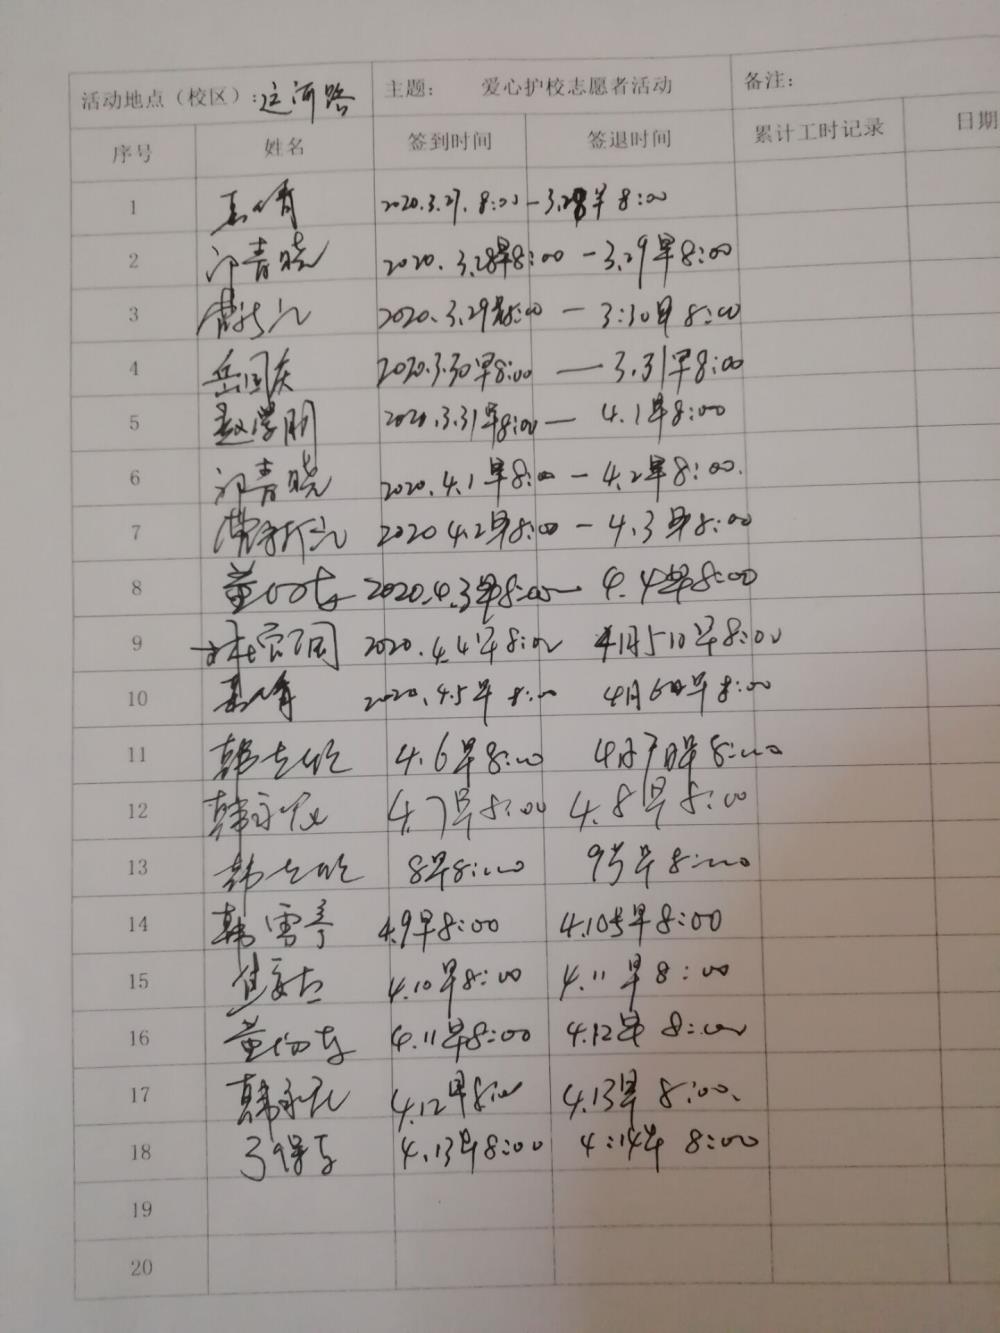 活动地点（校区）：运河路 主题： 爱心护校志愿者活动 备注：
序号 姓名 签到时间 签退时间 累计工时记录 日期
1 2020.3.27. 8:00 — 3.28早 8:00
2 邝青晓 2020. 3.28早8:00 — 3.29早8:00
3 2020. 3.29早8:00 — 3:30早 8:00
4 岳国庆 2020.3.30早8:00 — 3.31早8:00
5 赵学朋 2020.3.31早8:00 — 4.1早8:00
6 邝青晓 2020.4.1早8:00 — 4.2早8:00.
7 2020 4.2早8:00 — 4.3早8:00
8 2020.4.3早8:00 — 4.4早8:00
9 2020.4.4早8:00 4月5日早8:00
10 2020.4.5早 8:00 4月6日早8:00
11 4.6早8:00 4月7日早8:00
12 4.7早8:00 4.8早8:00
13 8早8:00 9号早8:00
14 韩雪亭 4.9早8:00 4.10号早8:00
15 4.10早8:00 4.11早8:00
16 4.11早8:00 4.12早 8:00
17 4.12早8:00 4.13早 8:00.
18 4.13早8:00 4:14早 8:00
19
20